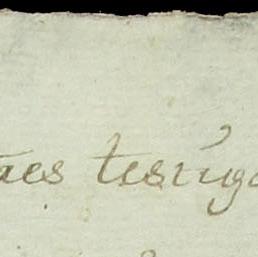 aes testigo